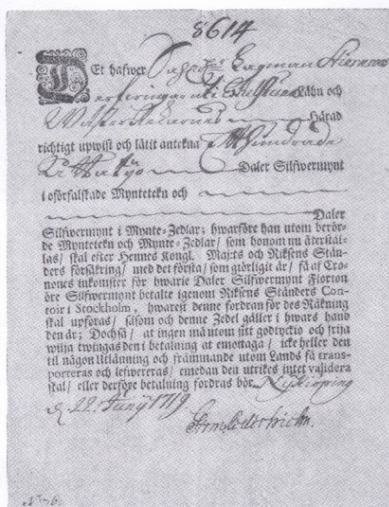 8614
Et hafwer
Lähn och
Härad
richtigt upwist och lätit antekna Ett Hundrade
Daler Silfwermynt
i oförfalskade Myntetekn och
Daler
Silfwermynt i Mynte-Zedlar; hwarföre han utom berör-
de Myntetekn och Mynte-Zedlar/ som honom nu återstäl-
las/ skal efter Hennes Kongl. Maj:ts och Riksens Stän-
ders försäkring/ med det första/ som giörligit är/ få af Cro-
nones inkomster för hwarje Daler Silfwermynt Fiorton
öre Silfwermynt betalte igenom Riksens Ständers Con-
toir i Stockholm, hwarest denne fordran för des Räkning
skal upföras/ såsom och denne Zedel gäller i hwars hand
den är; Dochså/ at ingen må utom sitt godtycke och frija
wilja twingas den i betalning at emottaga/ icke heller den
til någon Utlänning och främmande utom Lands få trans-
porteras och lefwereras/ emedan den utrikes intet validera
skal/ eller derföre betalning fordras bör. Nyköping
d. 22. Junij 1719